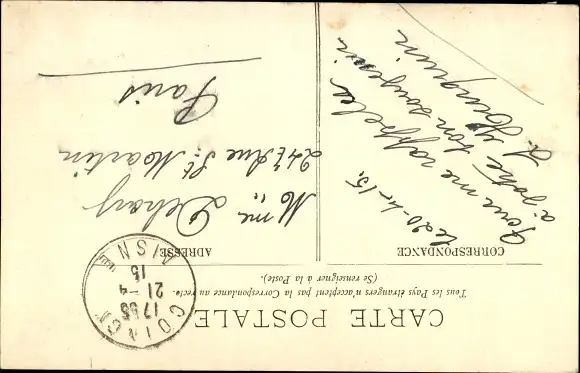 CARTE POSTALE
Tous les Pays étrangers n'acceptent pas la Correspondance au recto.
(Se renseigner à la Poste).
CORRESPONDANCE
Le 20-4-15.
Pour me rappeler
à votre bon souvenir.
ADRESSE
COINCY
17 55
21 -4
15
AISNE
Mme Dehay
247 Rue St. Martin
Paris